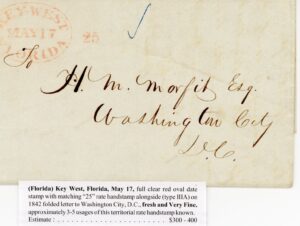 KEY WEST
MAY 17
FLORIDA
25
To
H. M. Morfit Esq.
Washington City
D.C.
(Florida) Key West, Florida, May 17, full clear red oval date
stamp with matching "25" rate handstamp alongside (type IIIA) on
1842 folded letter to Washington City, D.C., fresh and Very Fine,
approximately 3-5 usages of this territorial rate handstamp known.
Estimate : . . . . . . . . . . . . . . . . . . . . . . . . . . . . . . . . . . $300 - 400